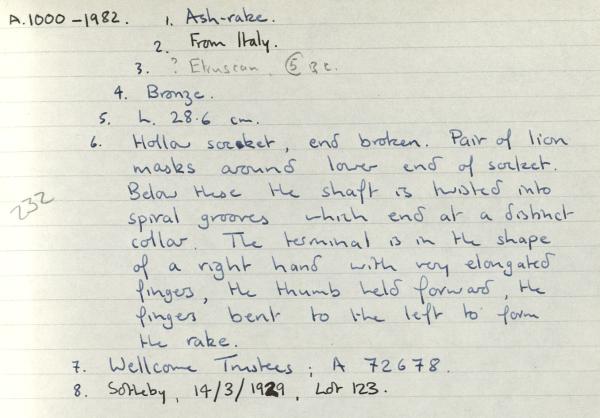 A.1000-1982. 1. Ash-rake.
2. From Italy.
3. ? Etruscan. 5 BC.
4. Bronze.
5. L. 28.6 cm.
6. Hollow socket, end broken. Pair of lion
masks around lower end of socket.
Below these the shaft is twisted into
232
spiral grooves which end at a distinct
collar. The terminal is in the shape
of a right hand with very elongated
fingers, the thumb held forward, the
fingers bent to the left to form
the rake.
7. Wellcome Trustees; A 72678.
8. Sotheby, 14/3/1929, Lot 123.